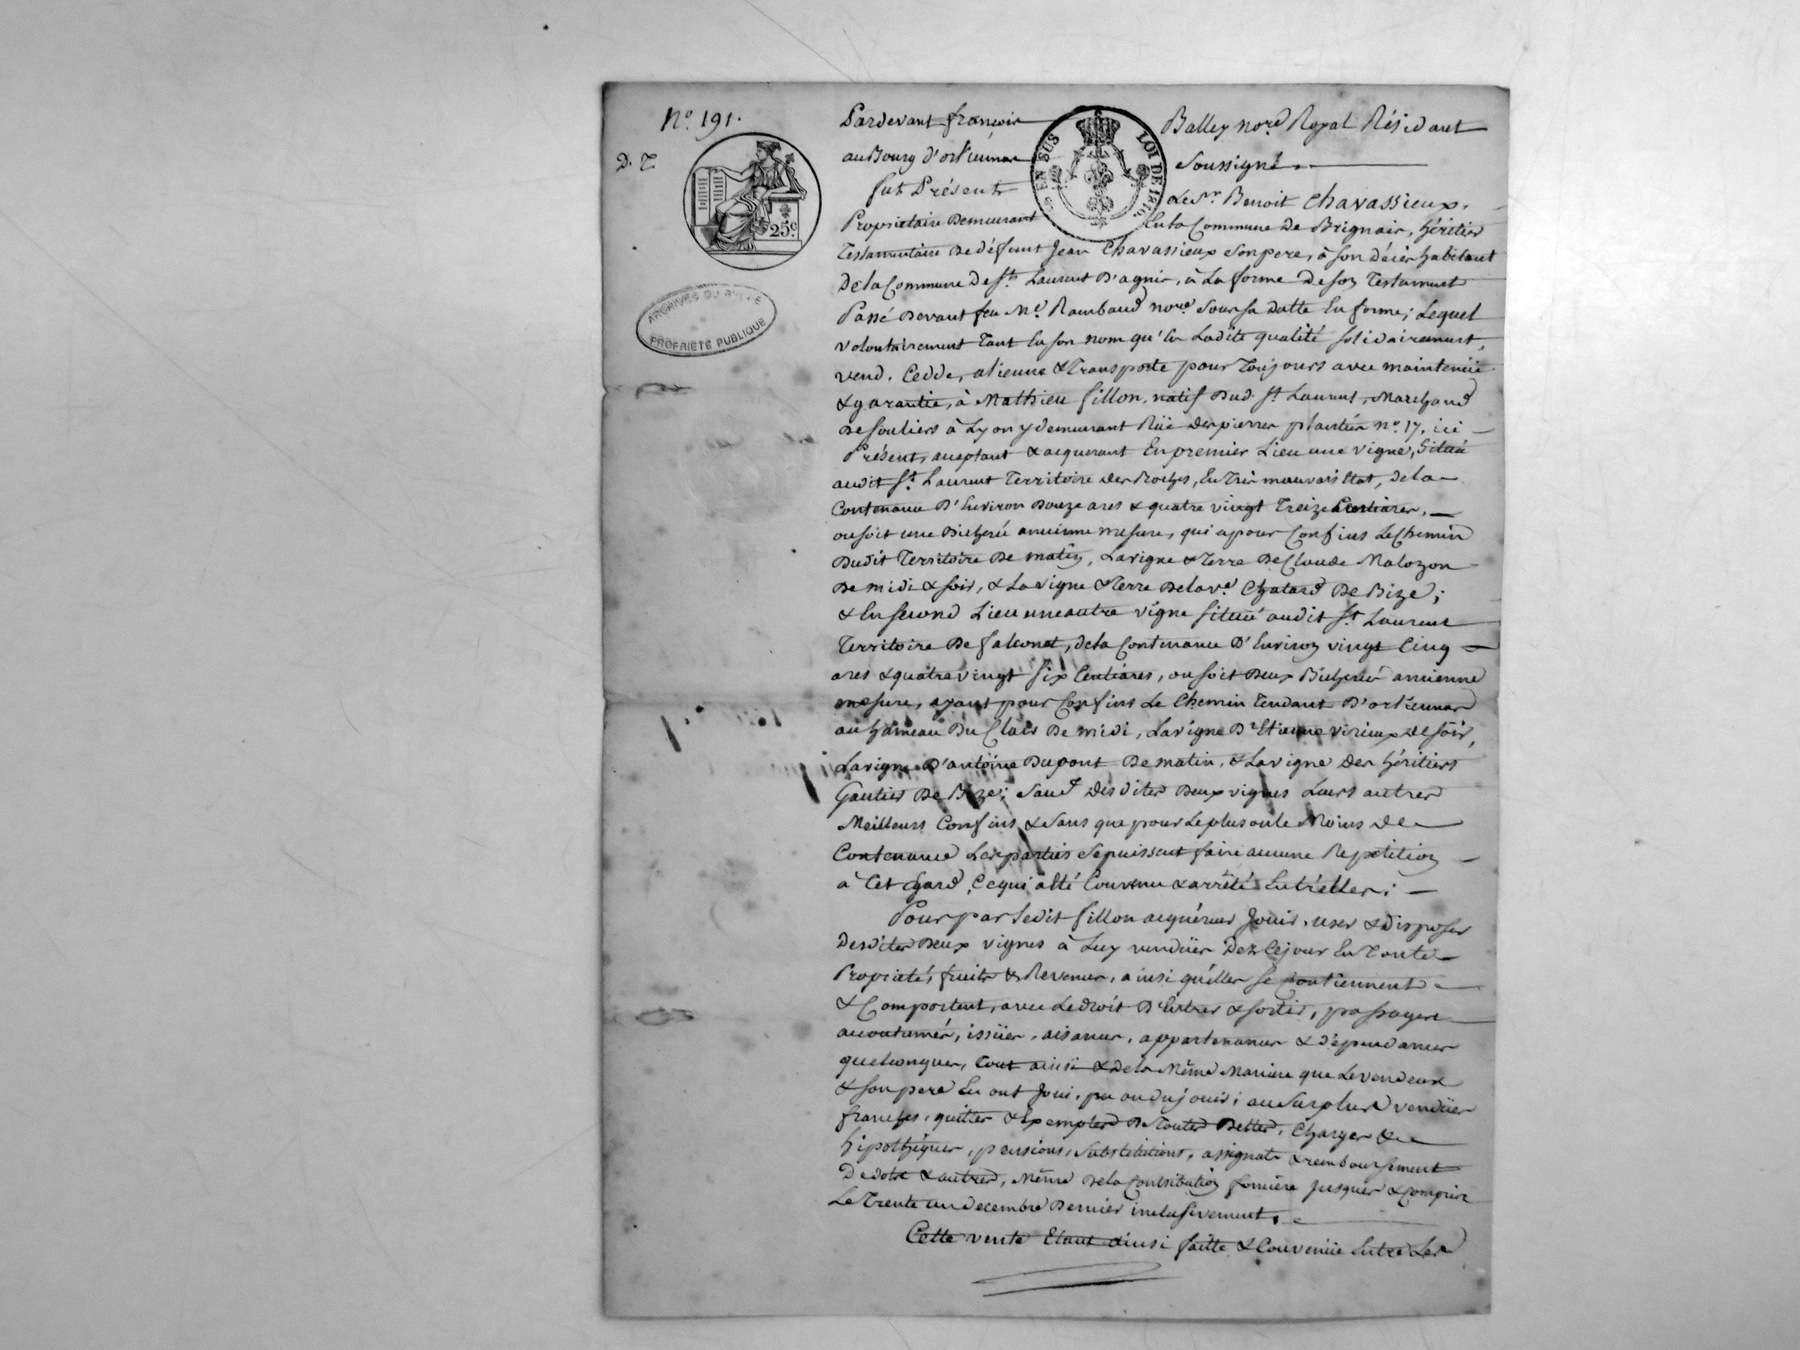 No. 191.
D. T
25c
ARCHIVES DU RHÔNE
PROPRIÉTÉ PUBLIQUE
EN SUS
LOI DE 1816
Pardevant françois Balley nore Royal Résidant
au Bourg d'orliennas soussigné.
fut Présent Le Sr. Benoit Chavassieux,
Proprietaire Demeurant En la Commune de Brignais, héritier
Testamentaire de défunt Jean Chavassieux son pere, à son décès habitant
de la Commune de St. Laurent D'agnis, à La forme de son Testament
Passé Devant feu Me. Rambaud nore. sous sa datte En forme; Lequel
volontairement Tant En son nom qu'En Ladite qualité solidairement,
vend, Cedde, alienne & Transporte pour Toujours avec maintenüe
& garantie, à Mathieu fillon, natif Dud. St. Laurent, Marchand
de souliers à Lyon y demeurant Rüe des pierres plantées no. 17. ici
Présent, aceptant & acquerant En premier Lieu une vigne, située
audit St. Laurent Territoire des Roches, En Très mauvais Etat, de la
Contenance D'Environ Douze ares & quatre vingt Treize Centiares,
ou soit une Bicherée ancienne mesure, qui a pour Confins Le Chemin
Dudit Territoire de matin, La vigne & Terre de Claude Malozon
de midi & soir, & La vigne & Terre de la ve. Chatard de Bize;
& En second Lieu une autre vigne située audit St. Laurent
Territoire de falconet, de la Contenance D'Environ vingt Cinq
ares & quatre vingt six Centiares, ou soit Deux Bicherées ancienne
mesure, ayant pour Confins Le Chemin Tendant D'orliennas
au hameau Du Clais de midi, La vigne D'Etienne virieux de soir,
La vigne D'antoine Dupont de matin, & La vigne des héritiers
Gautier de Bize; sauf desdites Deux vignes Leurs autres
Meilleurs Confins & sans que pour Le plus ou le Moins de
Contenance Les parties se puissent faire aucune Repétition
à Cet Egard, Ce qui a été Convenu & arrêté Entr'elles;
Pour par Ledit fillon acquéreur Jouir, user & disposer
desdites Deux vignes à Luy vendües Dez Ce jour En Toute
Propriété, fruits & Revenus, ainsi qu'elles se Contiennent
& Comportent, avec Le droit D'Entrer & sortir, passages
acoutumés, issües, aisances, appartenances & dépendances
quelconques, Tout ainsi & de la Même Maniere que Le vendeur
& son pere En ont Joui, pu ou du jouir; au surplus vendües
franches, quittes & Exemptes de Toutes Dettes, Charges &
hipothéques, pensions, substitutions, assignats & remboursement
De dote & autres, Même de la Contribution fonciere jusques & compris
Le Trente un decembre Dernier inclusivement.
Cette vente Etant ainsi faitte & Convenüe Entre Les